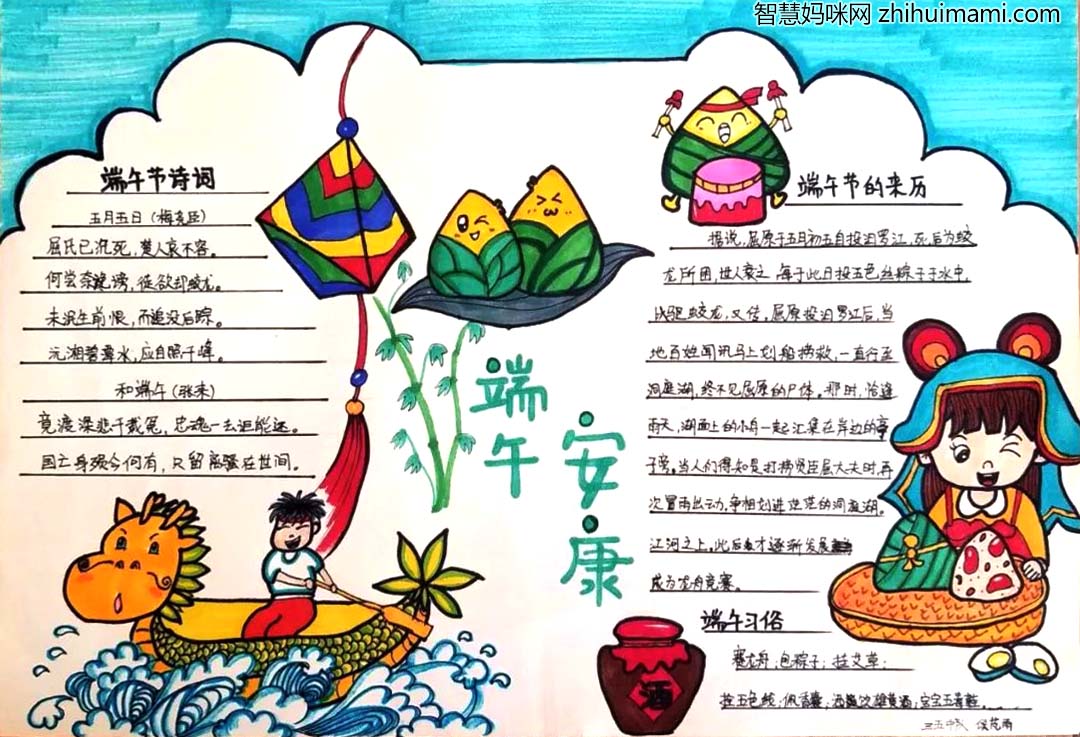 智慧妈咪网 zhihuimami.com
端午节诗词
五月五日(梅尧臣)
屈氏已沉死,楚人哀不容。
何尝奈谗谤,徒欲却蛟龙。
未泯生前恨,而追没后踪。
沅湘碧潭水,应自照千峰。
和端午(张耒)
竟渡深悲千载冤,忠魂一去讵能还。
国亡身殒今何有,只留离骚在世间。
端午
安康
端午节的来历
据说,屈原于五月初五自投汨罗江,死后为蛟
龙所困,世人哀之,每于此日投五色丝粽子于水中,
以驱蛟龙,又传,屈原投汨罗江后,当
地百姓闻讯马上划船捞救,一直行至
洞庭湖,终不见屈原的尸体。那时,恰逢
雨天,湖面上的小舟一起汇集在岸边的亭
子旁。当人们得知是打捞贤臣屈大夫时,再
次冒雨出动,争相划进茫茫的洞庭湖。
江河之上,此后才逐渐发展
成为龙舟竞赛。
端午习俗
赛龙舟;包粽子;挂艾草;
拴五色线;佩香囊;洒 饮雄黄酒;
酒
三五中队